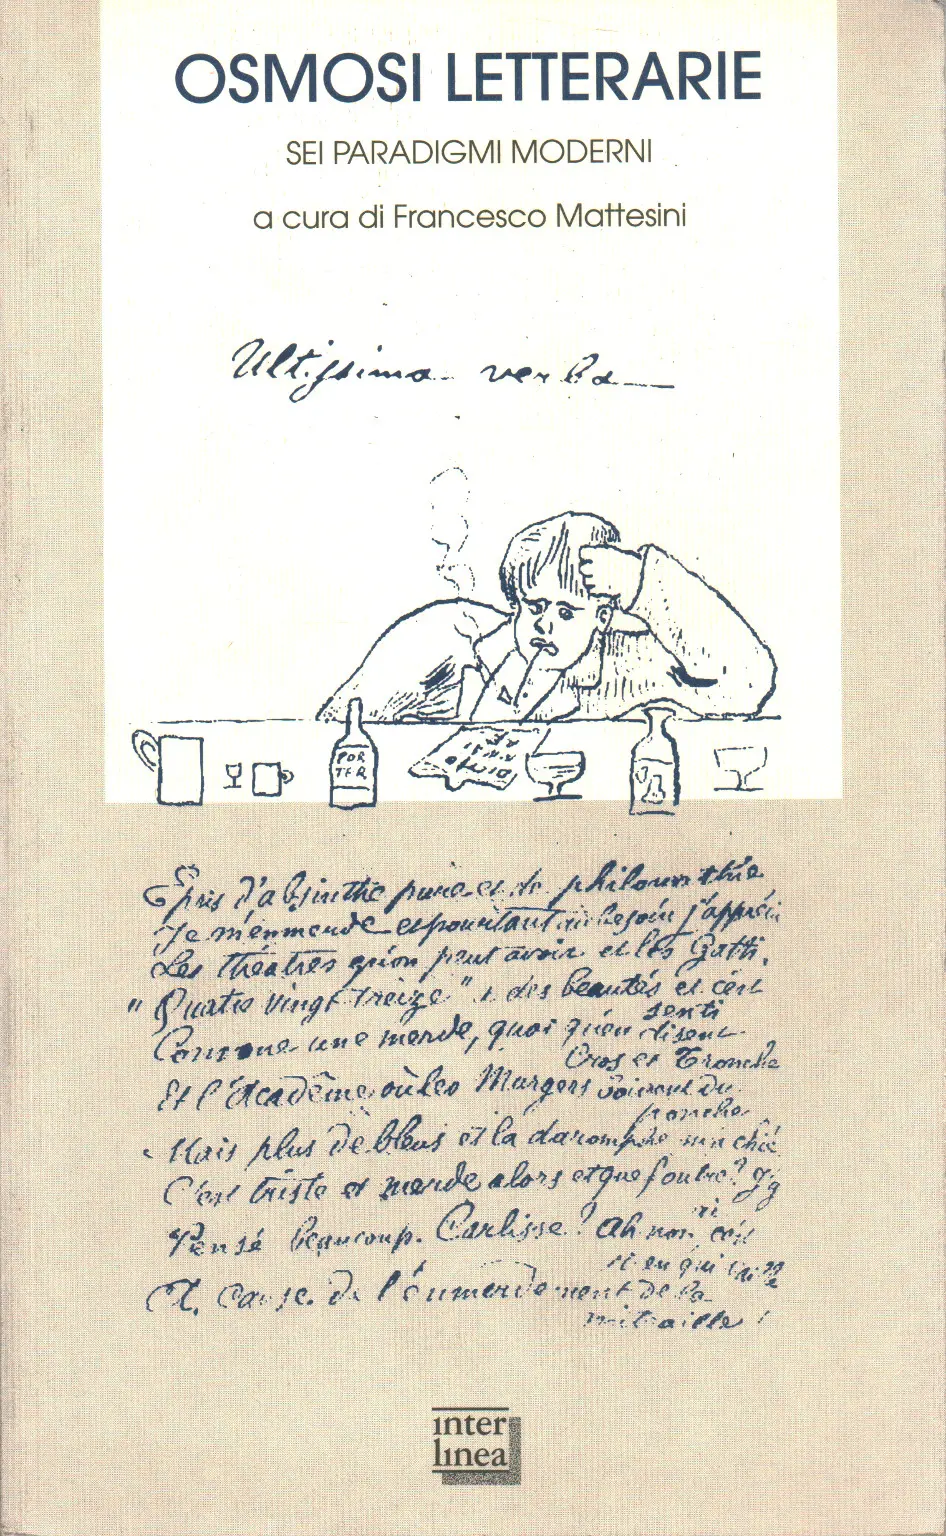 OSMOSI LETTERARIE
SEI PARADIGMI MODERNI
a cura di Francesco Mattesini
Ultissima verba
POR
TER
Épris d'absinthe pure et de philomathie
Je m'emmerde et pourtant au besoin j'apprécie
Les théâtres qu'on peut avoir et les Gatti.
"Quatre vingt treize" a des beautés et c'est
senti
Comme une merde, quoi qu'en disent
Cros et Tronche
Et l'Académie où les Murgers boivent du
ponche
Mais plus de bleus et la daromphe m'a chié
C'est triste et merde alors et que foutre? J'y
Pensé beaucoup. Carlisse? Ah non c'est
rien qui vaille
À cause de l'emmerdement de la
mitraille!
inter
linea